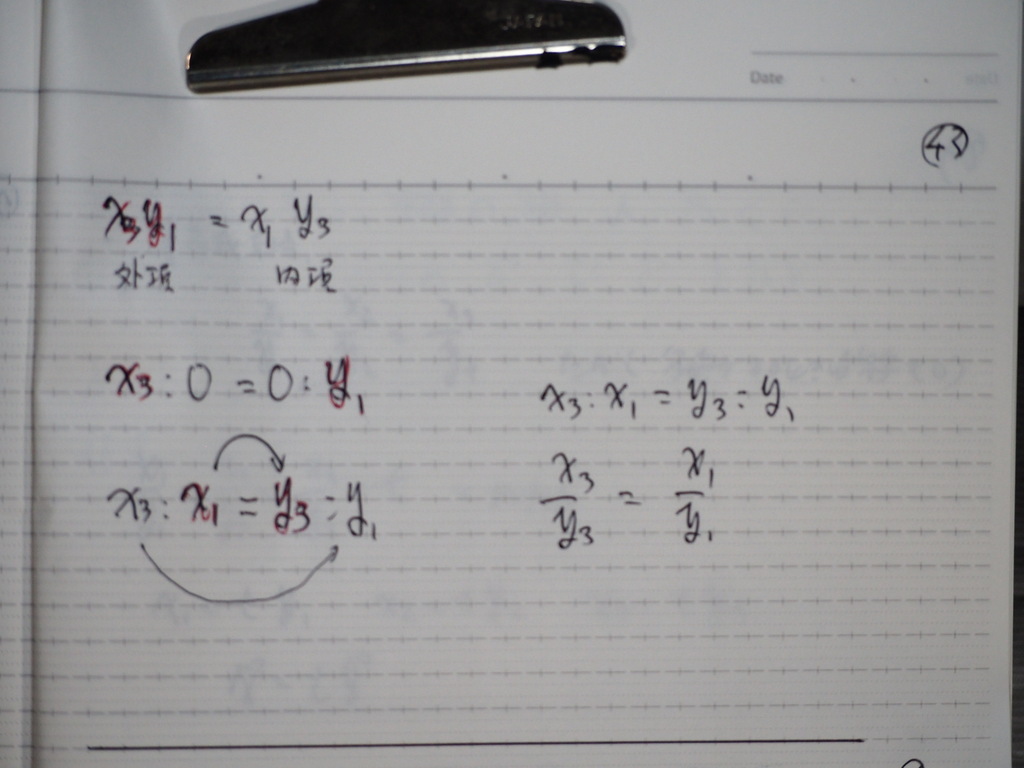 JAPAN
Date
43
x₃y₁ = x₁ y₃
外項 内項
x₃ : 0 = 0 : y₁
x₃ : x₁ = y₃ : y₁
x₃ : x₁ = y₃ : y₁
x₃/y₃ = x₁/y₁